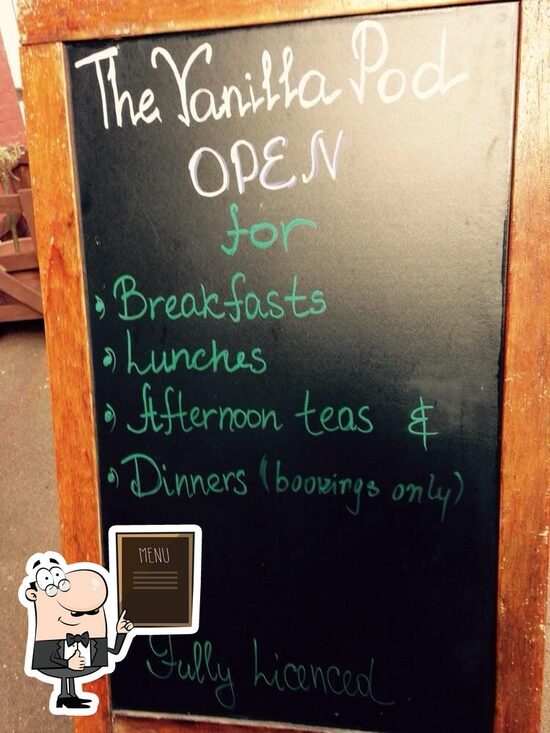 The Vanilla Pod
OPEN
for
Breakfasts
Lunches
Afternoon teas &
Dinners (bookings only)
MENU
Fully Licenced